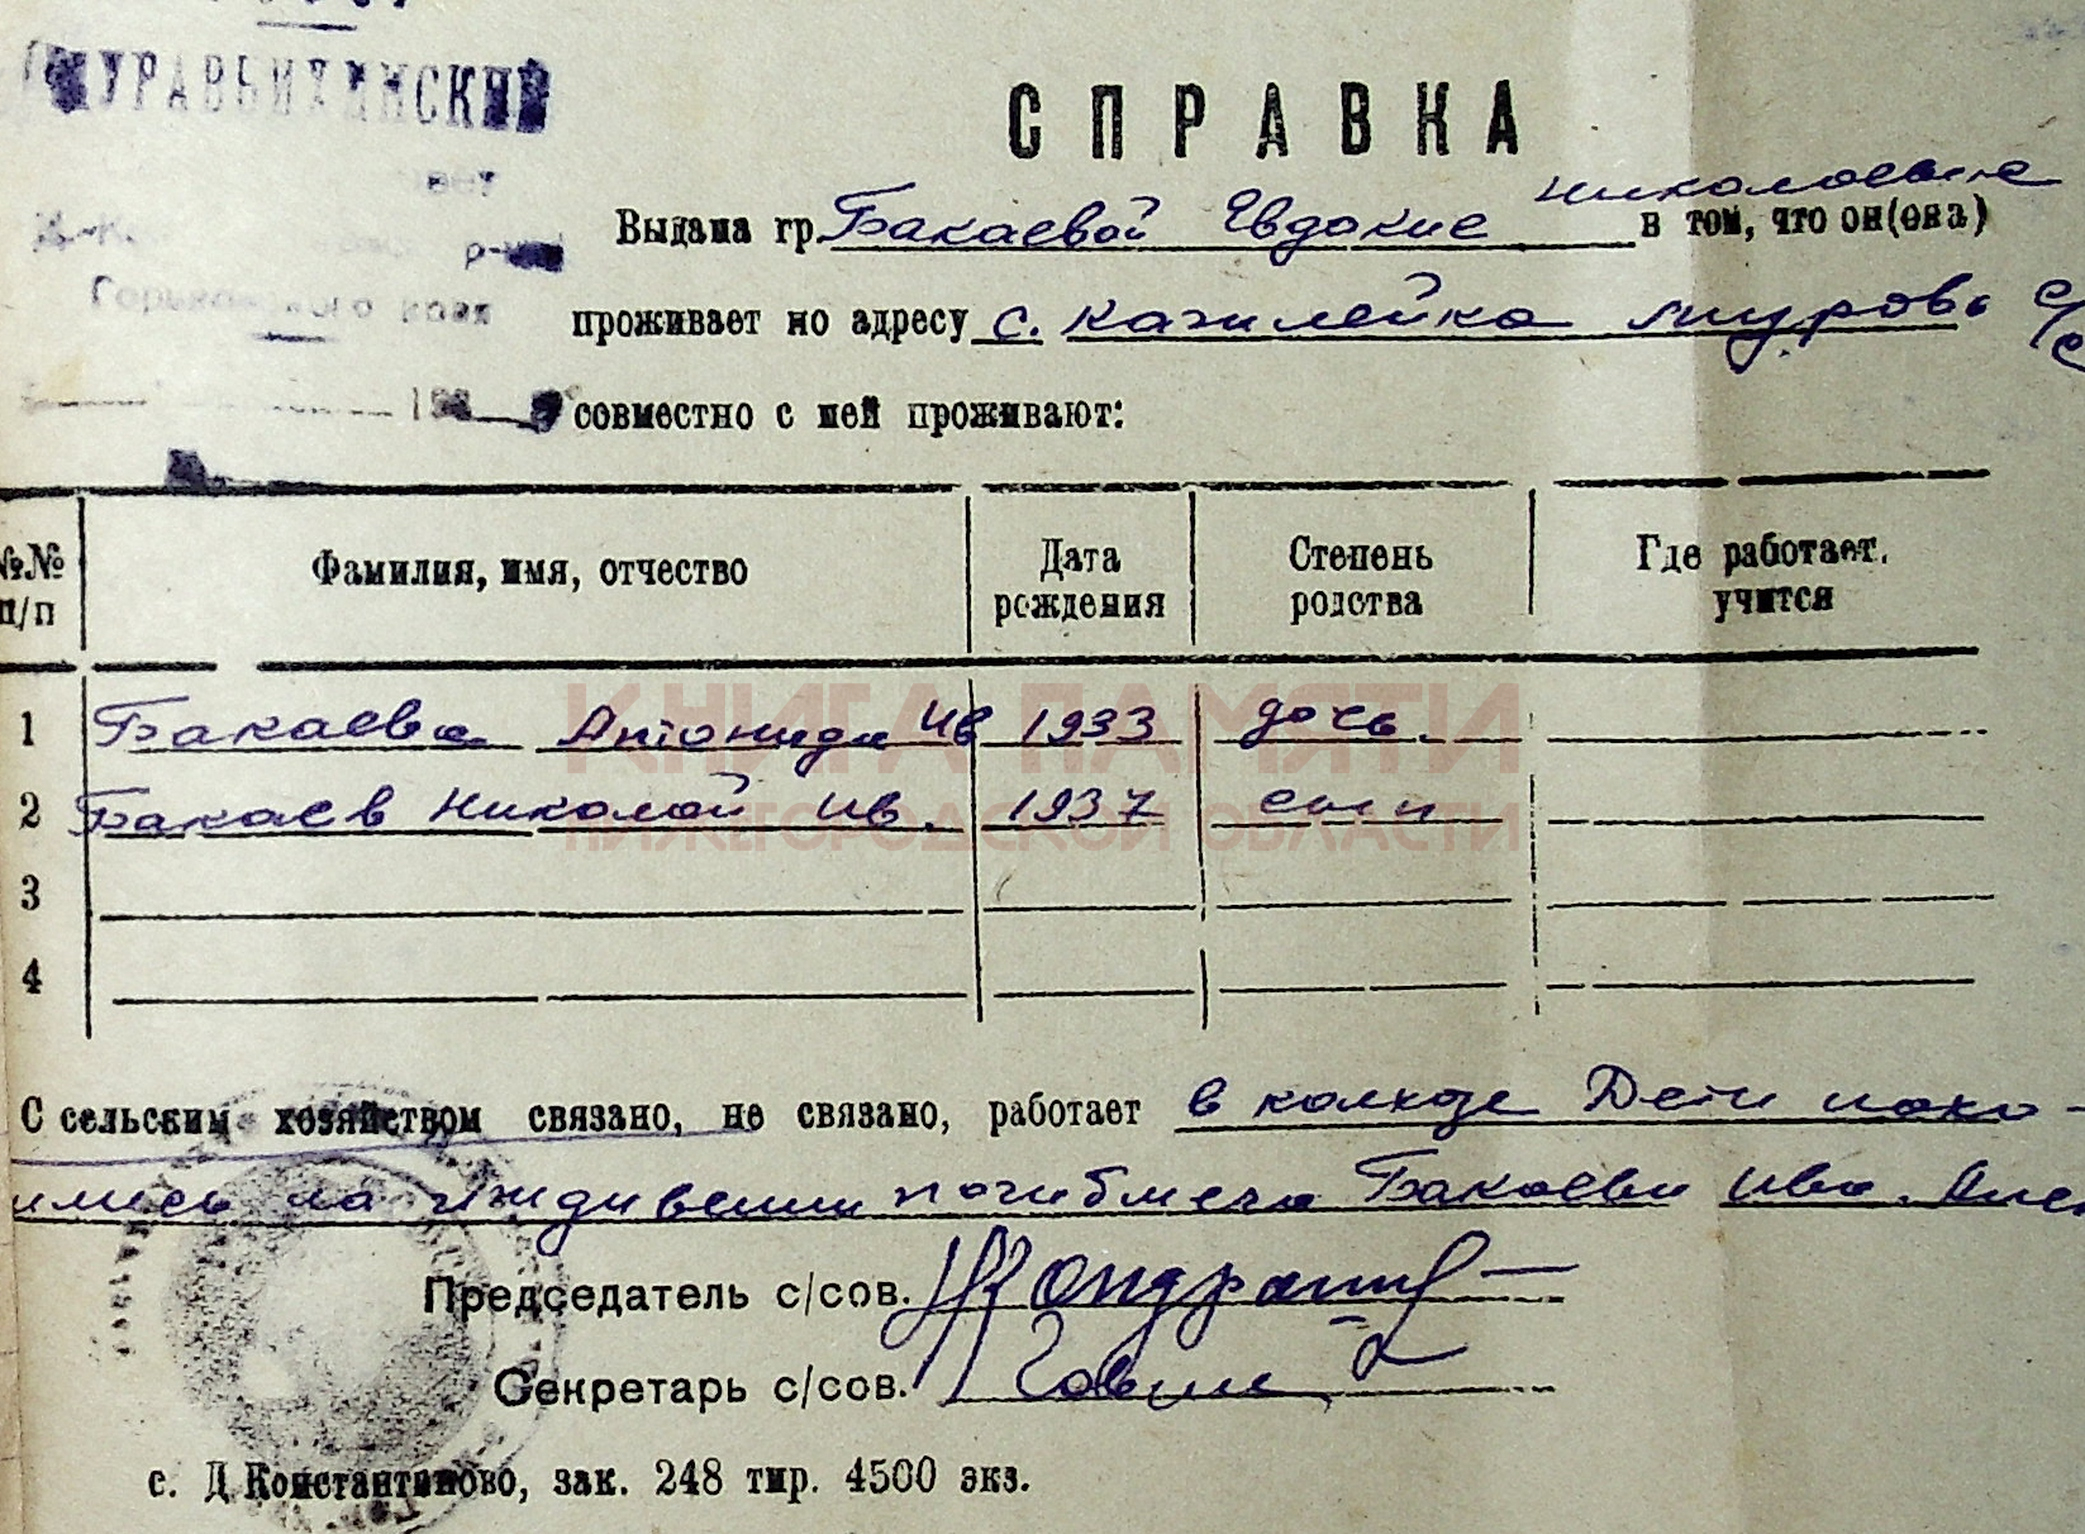 МУРАВЬИХИНСКИЙ
р-на
Горьковского края
СПРАВКА
Выдана гр. Бакаевой Евдокие Николаевне в том, что он(она)
проживает по адресу с. Кажлейка Муравь. с/с
совместно с ней проживают:
№№ п/п
Фамилия, имя, отчество
Дата рождения
Степень родства
Где работает, учится
1 Бакаева Антонида Ив 1933 дочь.
2 Бакаев Николай Ив. 1937 сын
3
4
С сельским хозяйством связано, не связано, работает в колхозе Дети нахо-
ились на иждивении погибшего Бакаева Ива. Алек
Председатель с/сов.
Секретарь с/сов.
с. Д Константиново, зак. 248 тир. 4500 экз.
КНИГА ПАМЯТИ
НИЖЕГОРОДСКОЙ ОБЛАСТИ